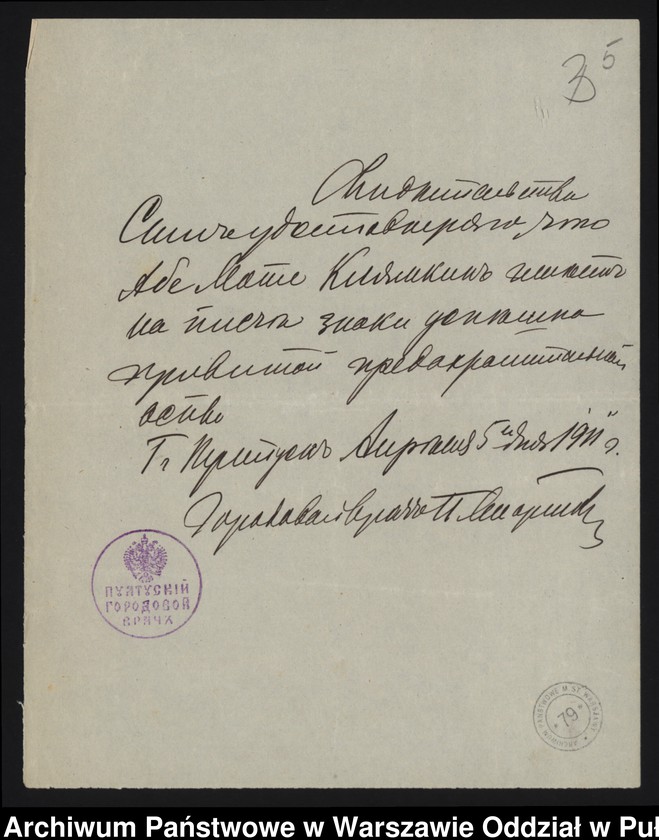 35
Свидетельство
Симъ удостоверяю, что
Абе Мате имеетъ
на плечѣ знаки успешно
привитой предохранительной
оспы
Г. Пултускъ Апреля 5 дня 1911 г.
Городовой врачъ
ПУЛТУСКІЙ
ГОРОДОВОЙ
ВРАЧЪ
ARCHIWUM PAŃSTWOWE M. ST. WARSZAWY
79
Archiwum Państwowe w Warszawie Oddział w Puł